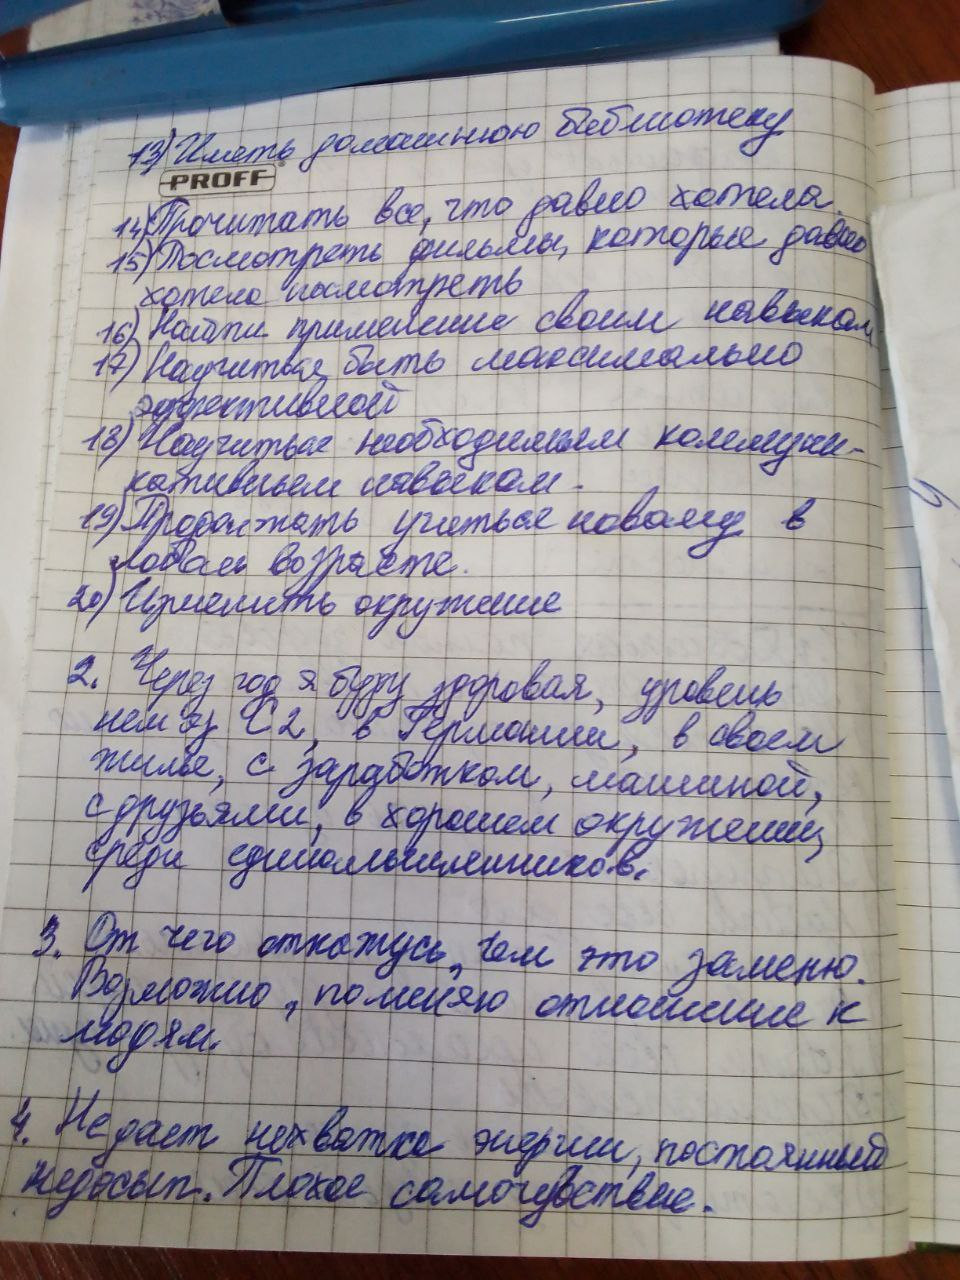 13) Иметь домашнюю библиотеку
PROFF
14) Прочитать все, что давно хотела.
15) Посмотреть фильмы, которые давно
хотела посмотреть
16) Найти применение своим навыкам
17) Научиться быть максимально
эффективной
18) Научиться необходимым коммуни-
кативным навыкам.
19) Продолжать учиться новому в
любом возрасте.
20) Изменить окружение
2. Через год я буду здоровая, уровень
нем яз С2, в Германии, в своем
жилье, с заработком, машиной,
с друзьями, в хорошем окружении,
среди единомышленников.
3. От чего откажусь, чем это заменю.
Возможно, поменяю отношение к
людям.
4. Не дает нехватка энергии, постоянный
недосып. Плохое самочувствие.